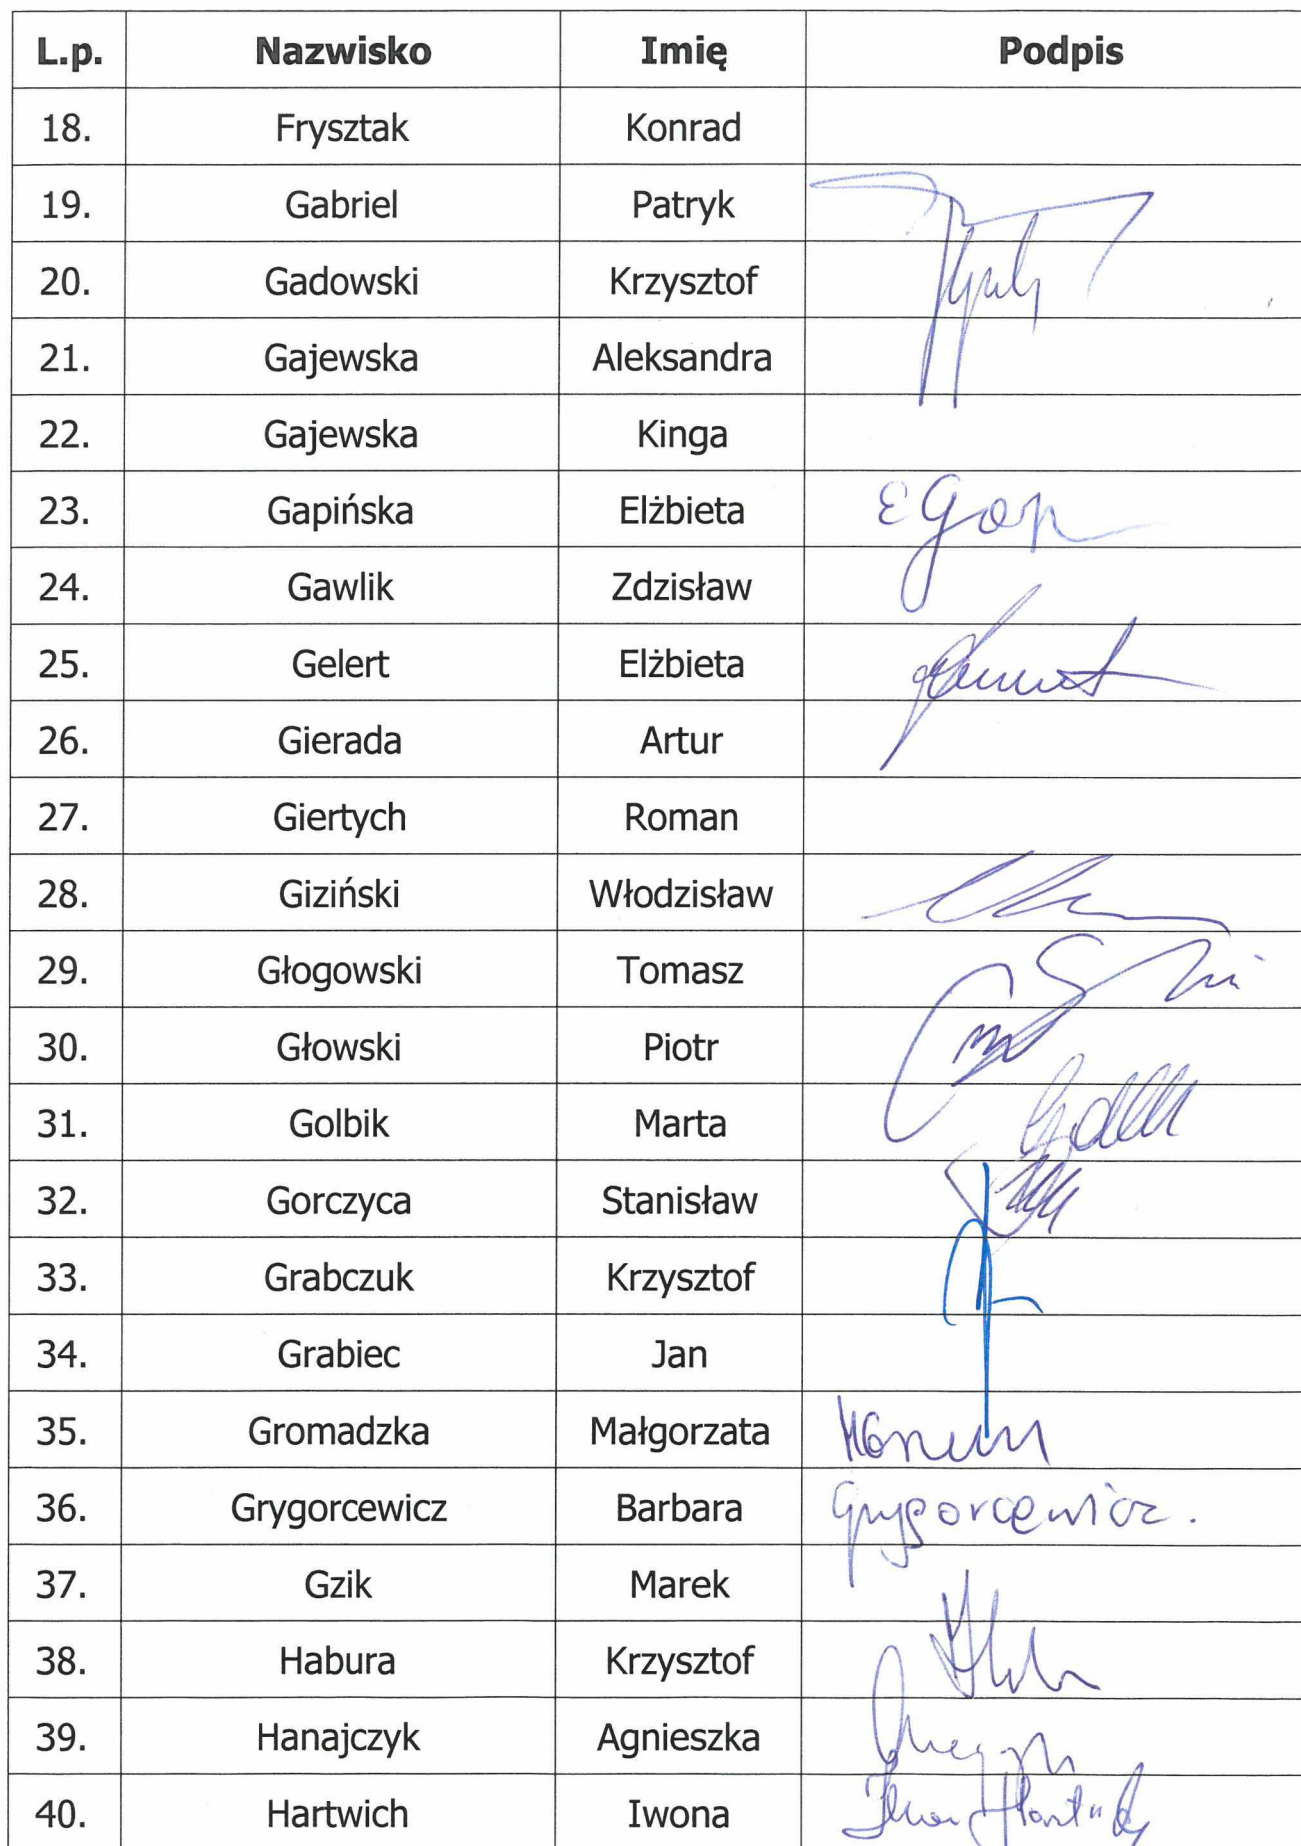 L.p. Nazwisko Imię Podpis
18. Frysztak Konrad
19. Gabriel Patryk
20. Gadowski Krzysztof
21. Gajewska Aleksandra
22. Gajewska Kinga
23. Gapińska Elżbieta EGap
24. Gawlik Zdzisław
25. Gelert Elżbieta
26. Gierada Artur
27. Giertych Roman
28. Giziński Włodzisław
29. Głogowski Tomasz
30. Głowski Piotr
31. Golbik Marta
32. Gorczyca Stanisław
33. Grabczuk Krzysztof
34. Grabiec Jan
35. Gromadzka Małgorzata
36. Grygorcewicz Barbara Grygorcewicz.
37. Gzik Marek
38. Habura Krzysztof
39. Hanajczyk Agnieszka
40. Hartwich Iwona Iwona Hartwich